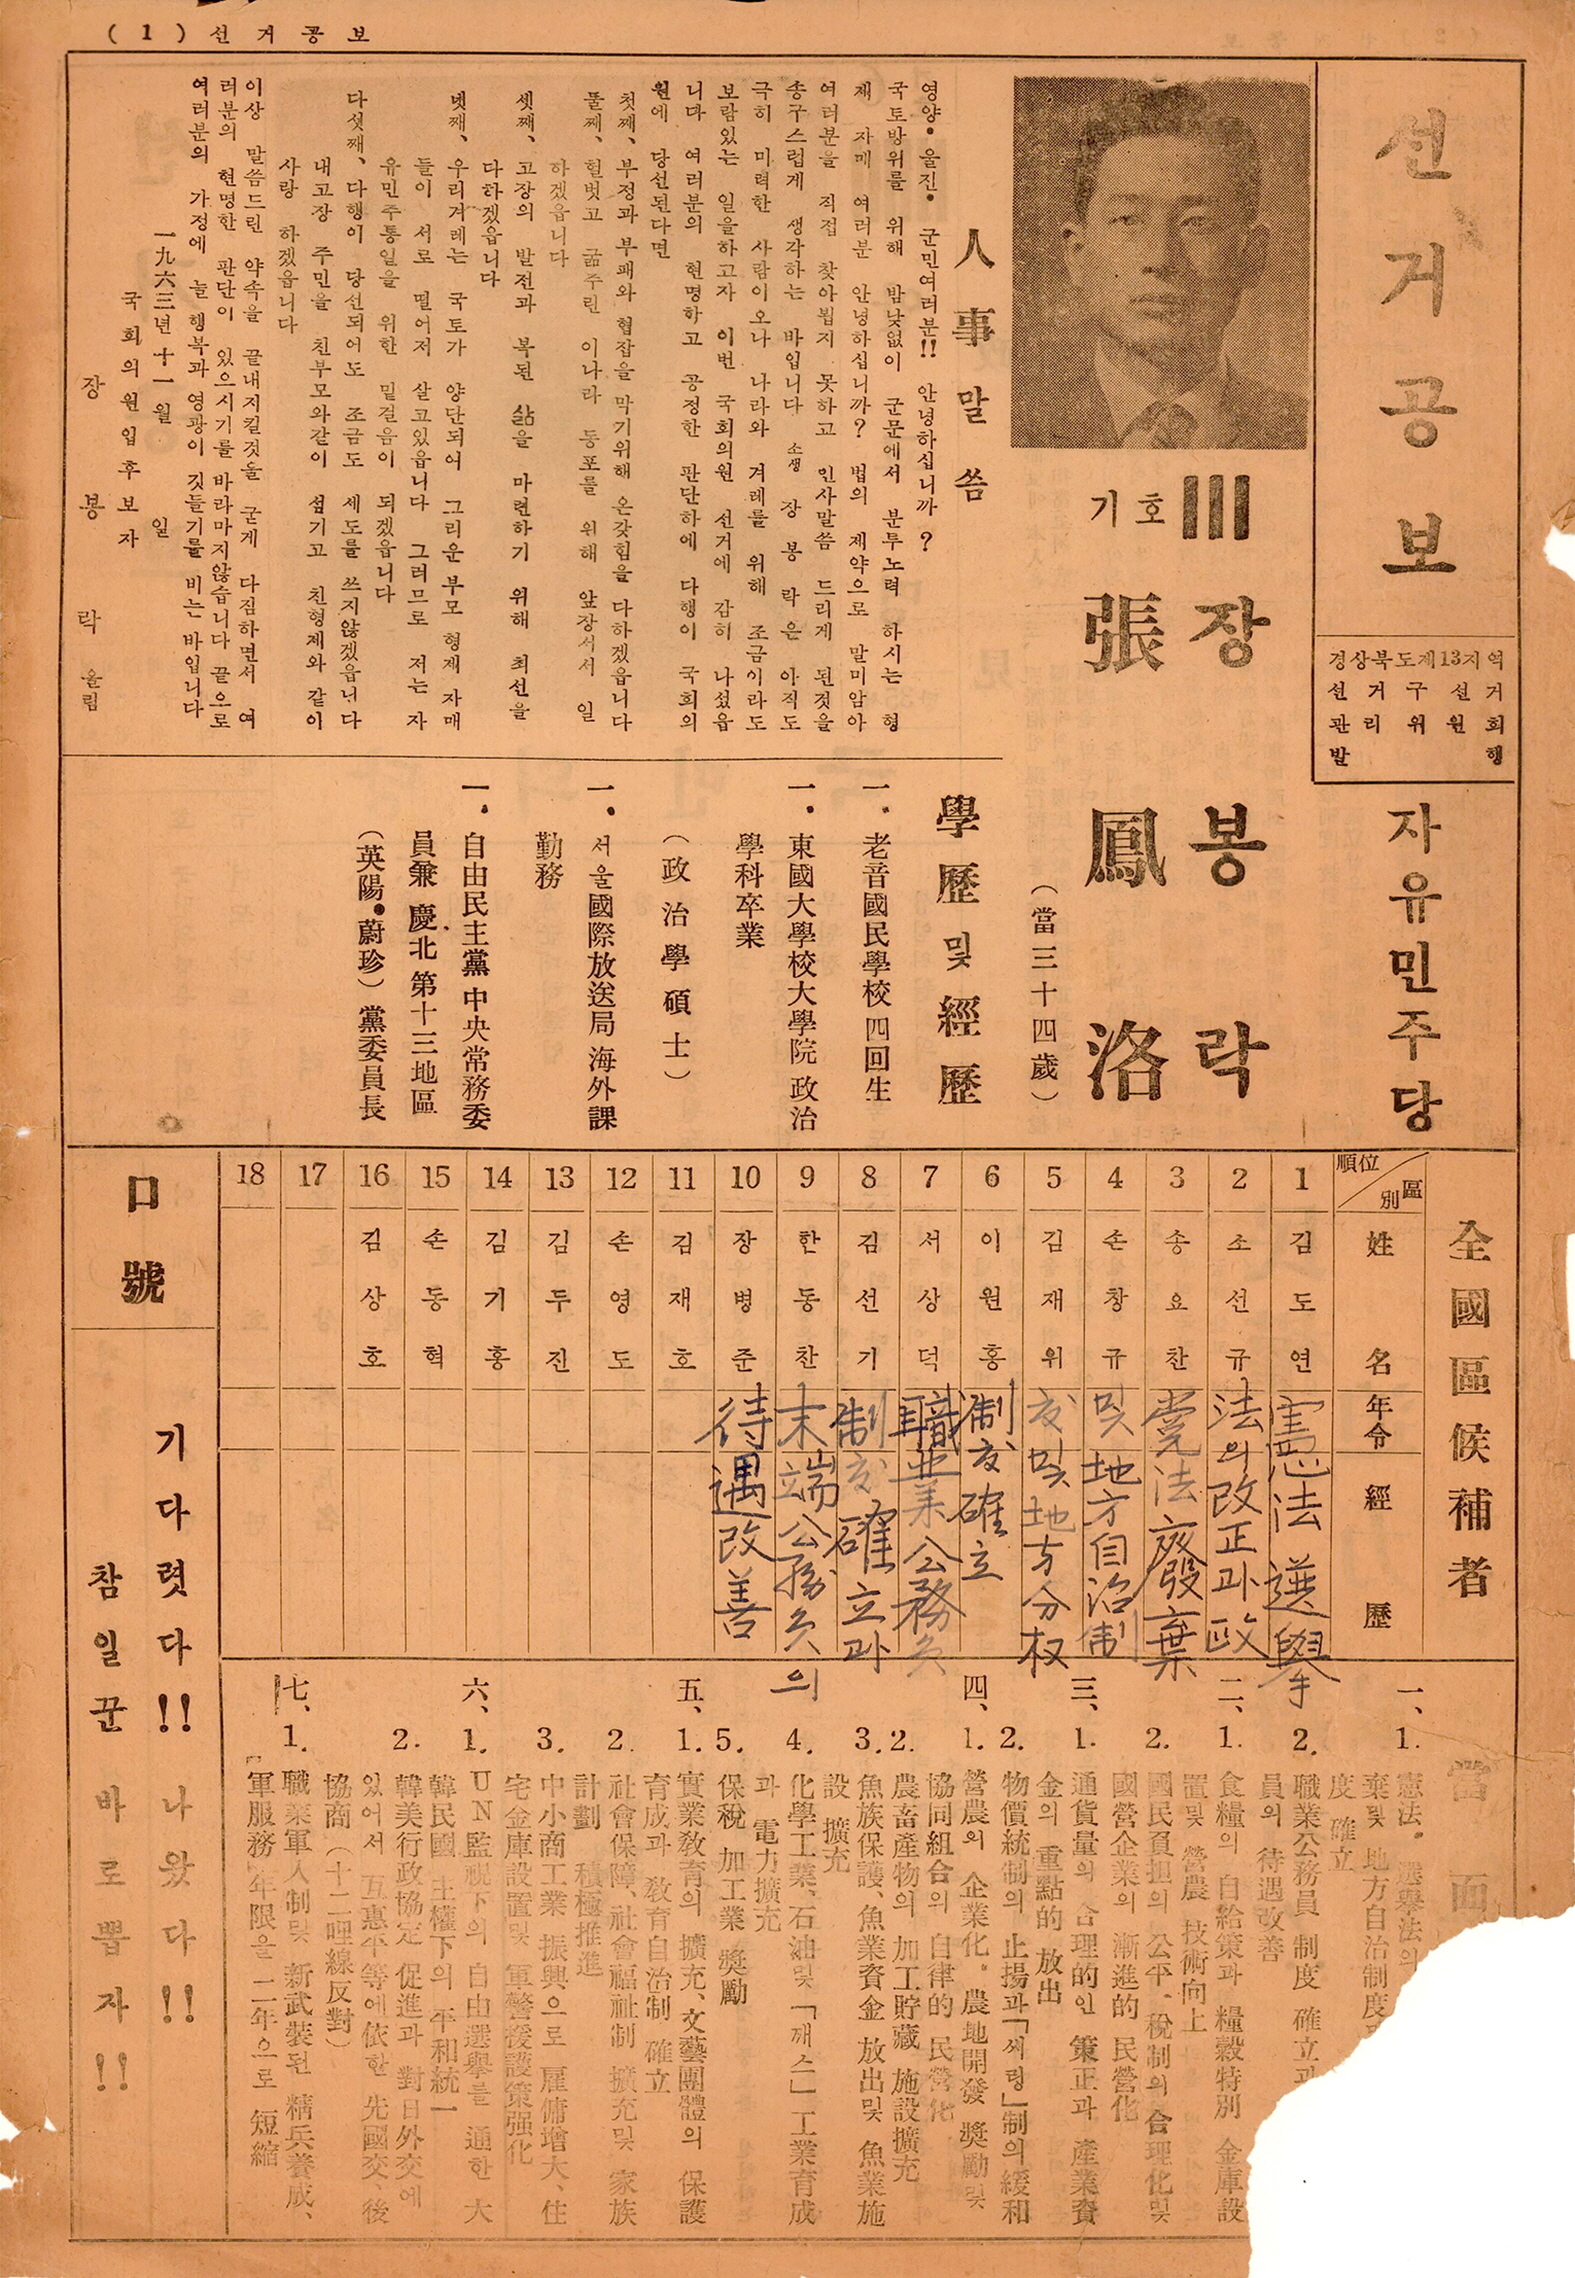 (1) 선거공보
선거공보
경상북도제13지역
선거구선거
관리위원회
발행
자유민주당
기호 III
장봉락
張鳳洛
(當三十四歲)
人事말씀
영양·울진· 군민여러분!! 안녕하십니까?
국토방위를 위해 밤낮없이 군문에서 분투노력 하시는 형
제 자매 여러분 안녕하십니까? 법의 제약으로 말미암아
여러분을 직접 찾아뵙지 못하고 인사말씀 드리게 된것을
송구스럽게 생각하는 바입니다 소생 장봉락은 아직도
극히 미력한 사람이오나 나라와 겨레를 위해 조금이라도
보람있는 일을하고자 이번 국회의원 선거에 감히 나섰읍
니다 여러분의 현명하고 공정한 판단하에 다행이 국회의
원에 당선된다면
첫째、부정과 부패와 협잡을 막기위해 온갖힘을 다하겠읍니다
둘째、헐벗고 굶주린 이나라 동포를 위해 앞장서서 일
하겠읍니다
셋째、고장의 발전과 복된 삶을 마련하기 위해 최선을
다하겠읍니다
넷째、우리겨레는 국토가 양단되어 그리운부모 형제 자매
들이 서로 떨어저 살고있읍니다 그러므로 저는 자
유민주통일을 위한 밑걸음이 되겠읍니다
다섯째、다행이 당선되어도 조금도 세도를 쓰지않겠읍니다
내고장 주민을 친부모와같이 섬기고 친형제와 같이
사랑 하겠읍니다
이상 말씀드린 약속을 끝내지킬것을 굳게 다짐하면서 여
러분의 현명한 판단이 있으시기를 바라마지않습니다 끝으로
여러분의 가정에 늘 행복과 영광이 깃들기를 비는 바입니다
一九六三년 十一월 일
국회의원입후보자
장봉락 올림
學歷및經歷
一. 老音國民學校 四回生
一. 東國大學校大學院 政治
學科卒業
(政治學碩士)
一. 서울國際放送局 海外課
勤務
一. 自由民主黨 中央常務委
員兼 慶北 第十三地區
(英陽·蔚珍) 黨委員長
全國區候補者
順位 區別 姓名 年令 經歷
1 김도연
2 조선규
3 송요찬
4 손창규
5 김재위
6 이원홍
7 서상덕
8 김선기
9 한동찬
10 장병준
11 김재호
12 손영도
13 김두진
14 김기홍
15 손동혁
16 김상호
17
18
憲法 選擧
法의 改正과 政
党法 廢棄
및 地方自治制
度 및 地方分权
制度 確立
職業公務員
制度 確立과
末端公務員의
待遇改善
當面
一、1. 憲法·選擧法의
棄및 地方自治制度
度 確立
2. 職業公務員 制度 確立과
員의 待遇改善
二、1. 食糧의 自給策과 糧穀特別 金庫設
置및 營農 技術向上
2. 國民負担의 公平·稅制의 合理化및
國營企業의 漸進的 民營化
三、1. 通貨量의 合理的인 策正과 產業資
金의 重點的 放出
2. 物價統制의 止揚과「세령」制의 緩和
四、1. 營農의 企業化·農地開發 奬勵및
協同組合의 自律的 民營化
2. 農畜產物의 加工貯藏 施設擴充
3. 魚族保護、魚業資金 放出및 魚業施
設 擴充
4. 化學工業、石油및「깨스」工業育成
과 電力擴充
5. 保稅 加工業 奬勵
五、1. 實業敎育의 擴充、文藝團體의 保護
育成과 敎育自治制 確立
2. 社會保障、社會福祉制 擴充및 家族
計劃 積極推進
3. 中小商工業 振興으로 雇傭增大、住
宅金庫設置및 軍警援護策强化
六、1. UN監視下의 自由選擧를 通한 大
韓民國 主權下의 平和統一
2. 韓美行政協定 促進과 對日外交에
있어서 互惠平等에依한 先國交、後
協商(十二哩線反對)
七、1. 職業軍人制및 新武裝된 精兵養成、
軍服務 年限을 二年으로 短縮
口號
기다렷다!! 나왔다!!
참일꾼 바로뽑자!!